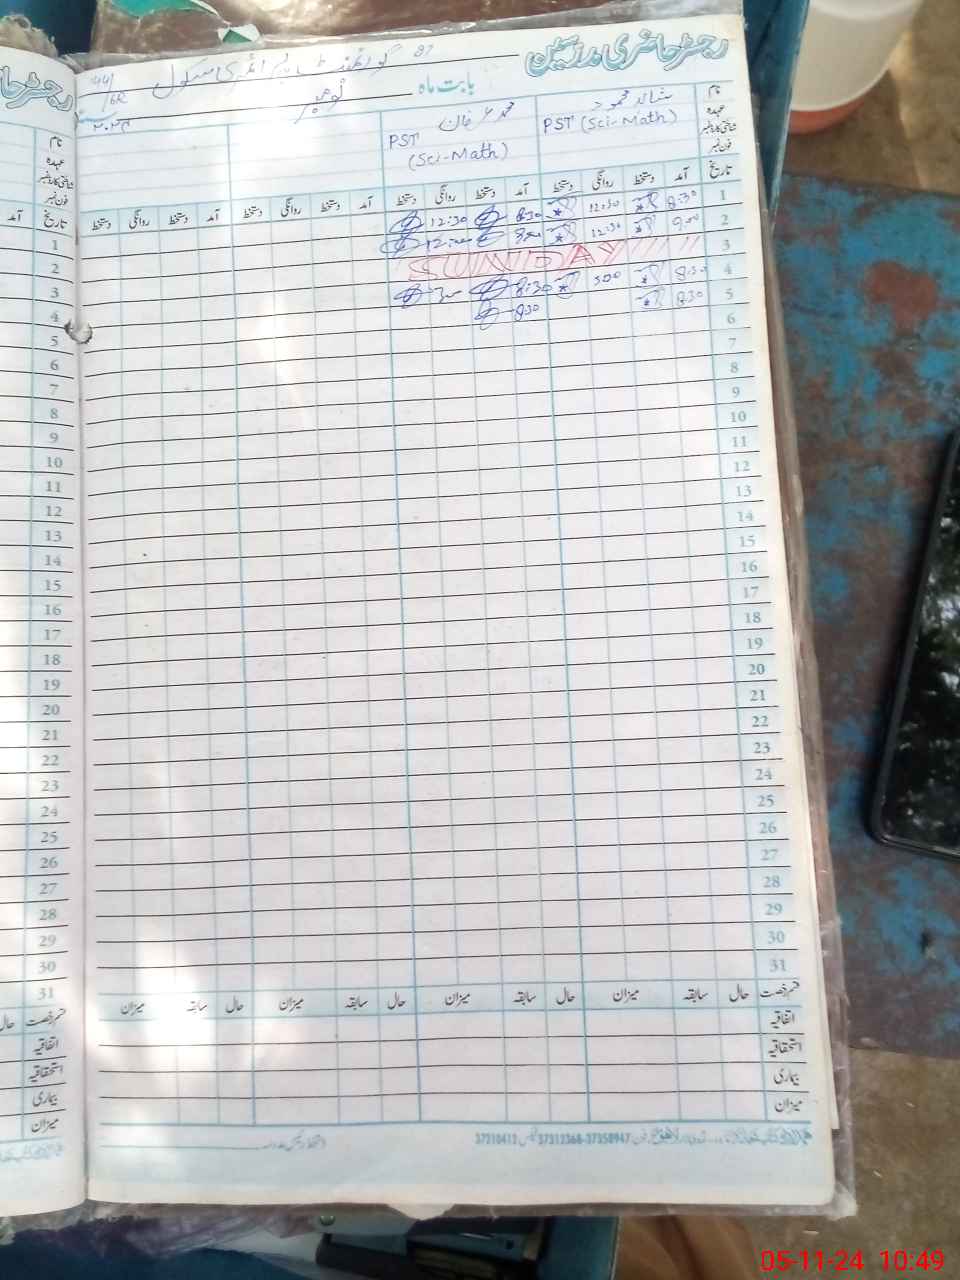 رجسٹر حاضری مدرسین
گورنمنٹ پرائمری سکول 87
44/6R
بابت ماہ نومبر ۲۰۲۴
نام
عہدہ
شناختی کارڈ نمبر
فون نمبر
شاہد محمود
PST (Sci-Math)
محمد عمر خان
PST
(Sci-Math)
تاریخ آمد دستخط روانگی دستخط آمد دستخط روانگی دستخط آمد دستخط روانگی دستخط آمد دستخط روانگی دستخط
1 8:30 12:30 8:30 12:30
2 9:00 12:30
3 SUNDAY
4 8:30 3:00 8:30
5 8:30 8:30
6
7
8
9
10
11
12
13
14
15
16
17
18
19
20
21
22
23
24
25
26
27
28
29
30
31
قسم رخصت حال سابقہ میزان حال سابقہ میزان حال سابقہ میزان حال سابقہ میزان
اتفاقیہ
استحقاقیہ
بیماری
میزان
37310412 37312368-37358947
نام
عہدہ
شناختی کارڈ نمبر
فون نمبر
تاریخ آمد
1
2
3
4
5
6
7
8
9
10
11
12
13
14
15
16
17
18
19
20
21
22
23
24
25
26
27
28
29
30
31
قسم رخصت حال
اتفاقیہ
استحقاقیہ
بیماری
میزان
05-11-24 10:49